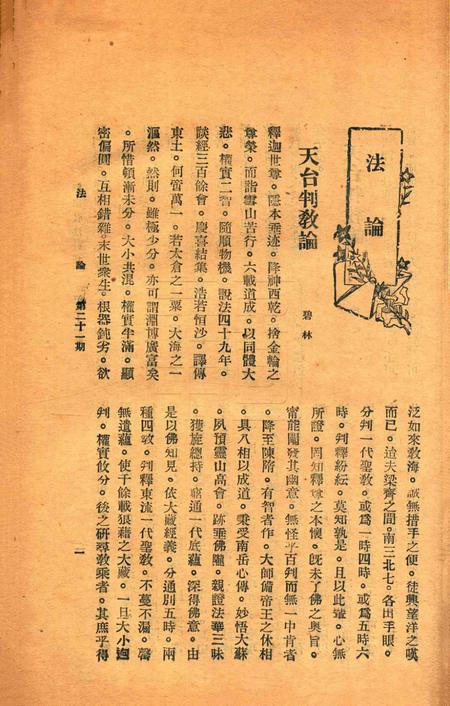 法論
天台判教論
碧林
釋迦世尊。隱本垂迹。降神西乾。捨金輪之
尊榮。而詣雪山苦行。六載道成。以同體大
悲。權實二智。隨順物機。說法四十九年。
談經三百餘會。慶喜結集。浩若恒沙。譯傳
東土。何啻萬一。若太倉之一粟。大海之一
漚然。然則。雖極少分。亦可謂淵博廣富矣
。所惜頓漸未分。大小共混。權實半滿。顯
密偏圓。互相錯雜。末世衆生。根器鈍劣。欲
法論 第二十一期
泛如來敎海。誠無措手之便。徒興望洋之嘆
而已。造夫梁齊之間。南三北七。各出手眼。
分判一代聖敎。或爲一時四時。或爲五時六
時。判釋紛紜。莫知孰是。且以此輩。心無
所證。罔知釋尊之本懷。旣未了佛之奧旨。
甯能闡發其幽意。無怪乎百判而無一中肯者
。降至陳隋。有智者作。大師備帝王之休相
。具八相以成道。秉受南岳心傳。妙悟大蘇
。夙預靈山高會。跡垂佛隴。親證法華三昧
。獲旋總持。窮通一代底蘊。深得佛意。由
是以佛知見。依大藏經義。分通別五時。兩
種四敎。判釋東流一代聖敎。不蔓不漏。罄
無遺蘊。使千餘載狼藉之大藏。一旦大小迥
判。權實攸分。後之研尋敎乘者。其庶乎得
一